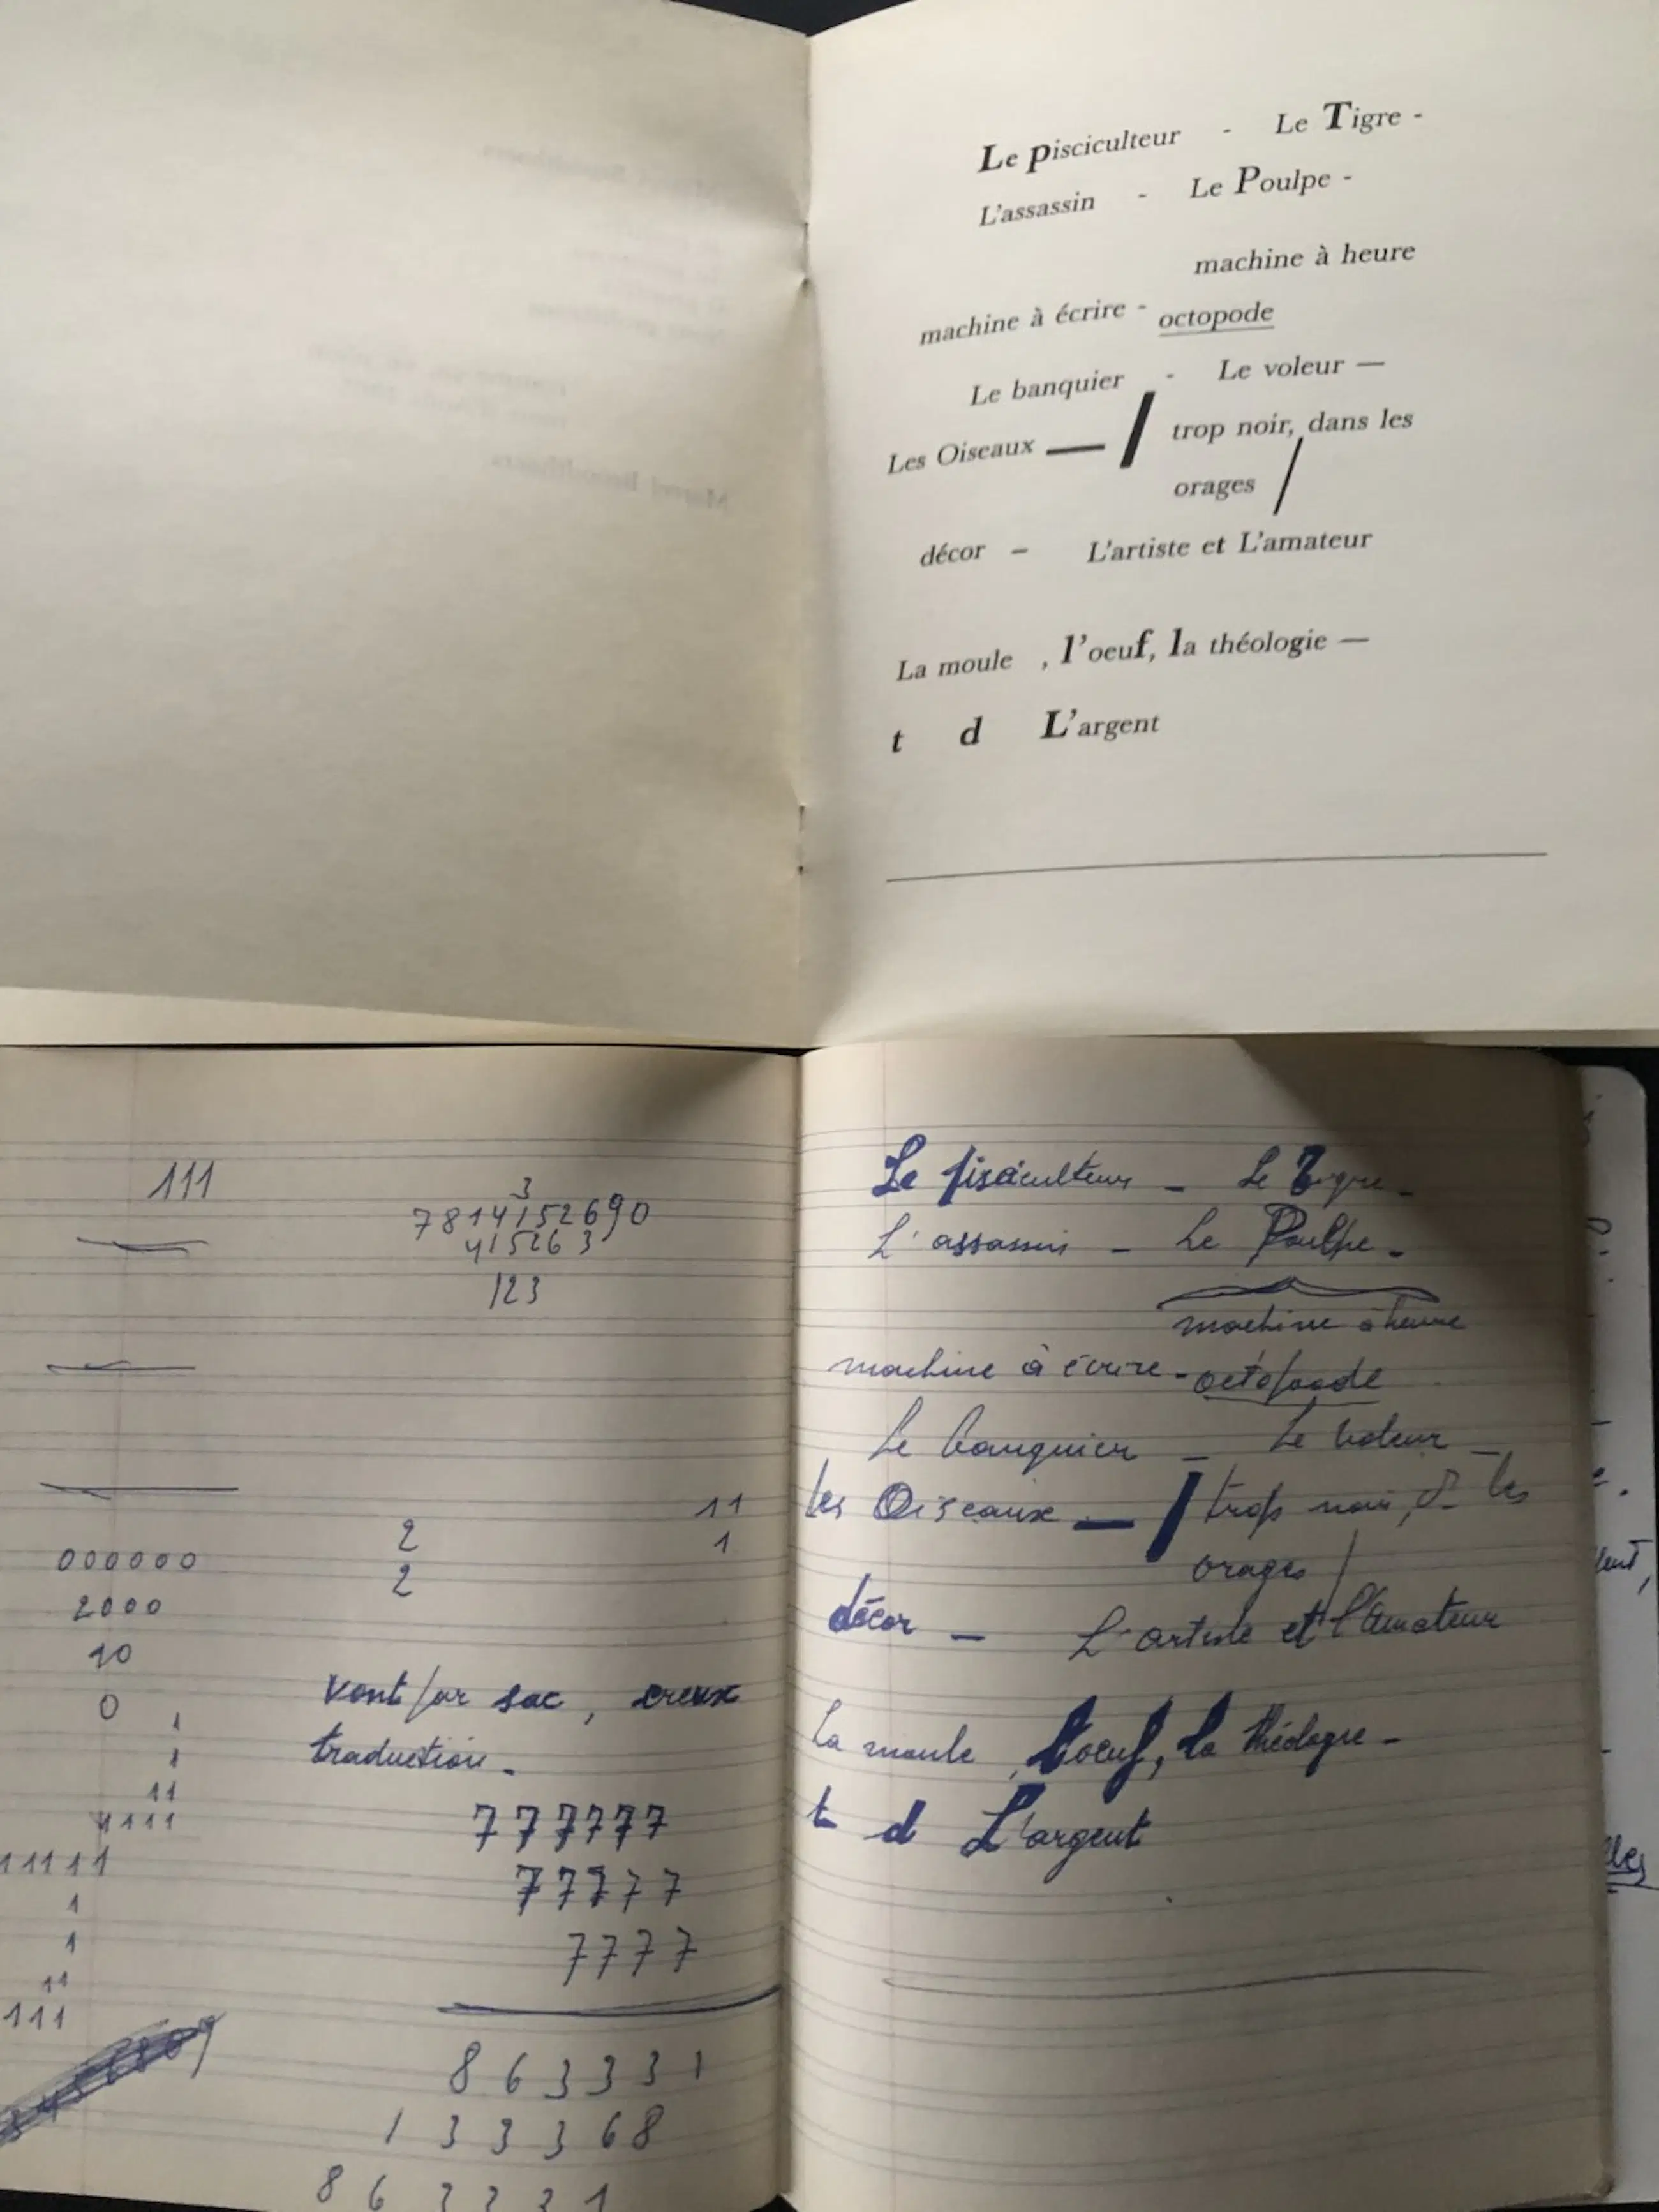 Le pisciculteur - Le Tigre -
L'assassin - Le Poulpe -
machine à heure
machine à écrire - octopode
Le banquier - Le voleur —
Les Oiseaux — / trop noir, dans les
orages /
décor – L'artiste et L'amateur
La moule , l'oeuf, la théologie —
t d L'argent
111
3
7814152690
415263
123
2
2
11
1
000000
2000
10
0
1
1
11
1111
11111
1
1
11
111
vont par sac, creux
traduction -
777777
77777
7777
863331
133368
863331
Le pisciculteur - Le Tigre -
L'assassin - Le Poulpe -
machine à heure
machine à écrire - octopode
Le banquier - Le voleur -
les Oiseaux — / trop noir, d les
orages /
décor - L'artiste et l'Amateur
la moule, l'oeuf, la théologie -
t d L'argent